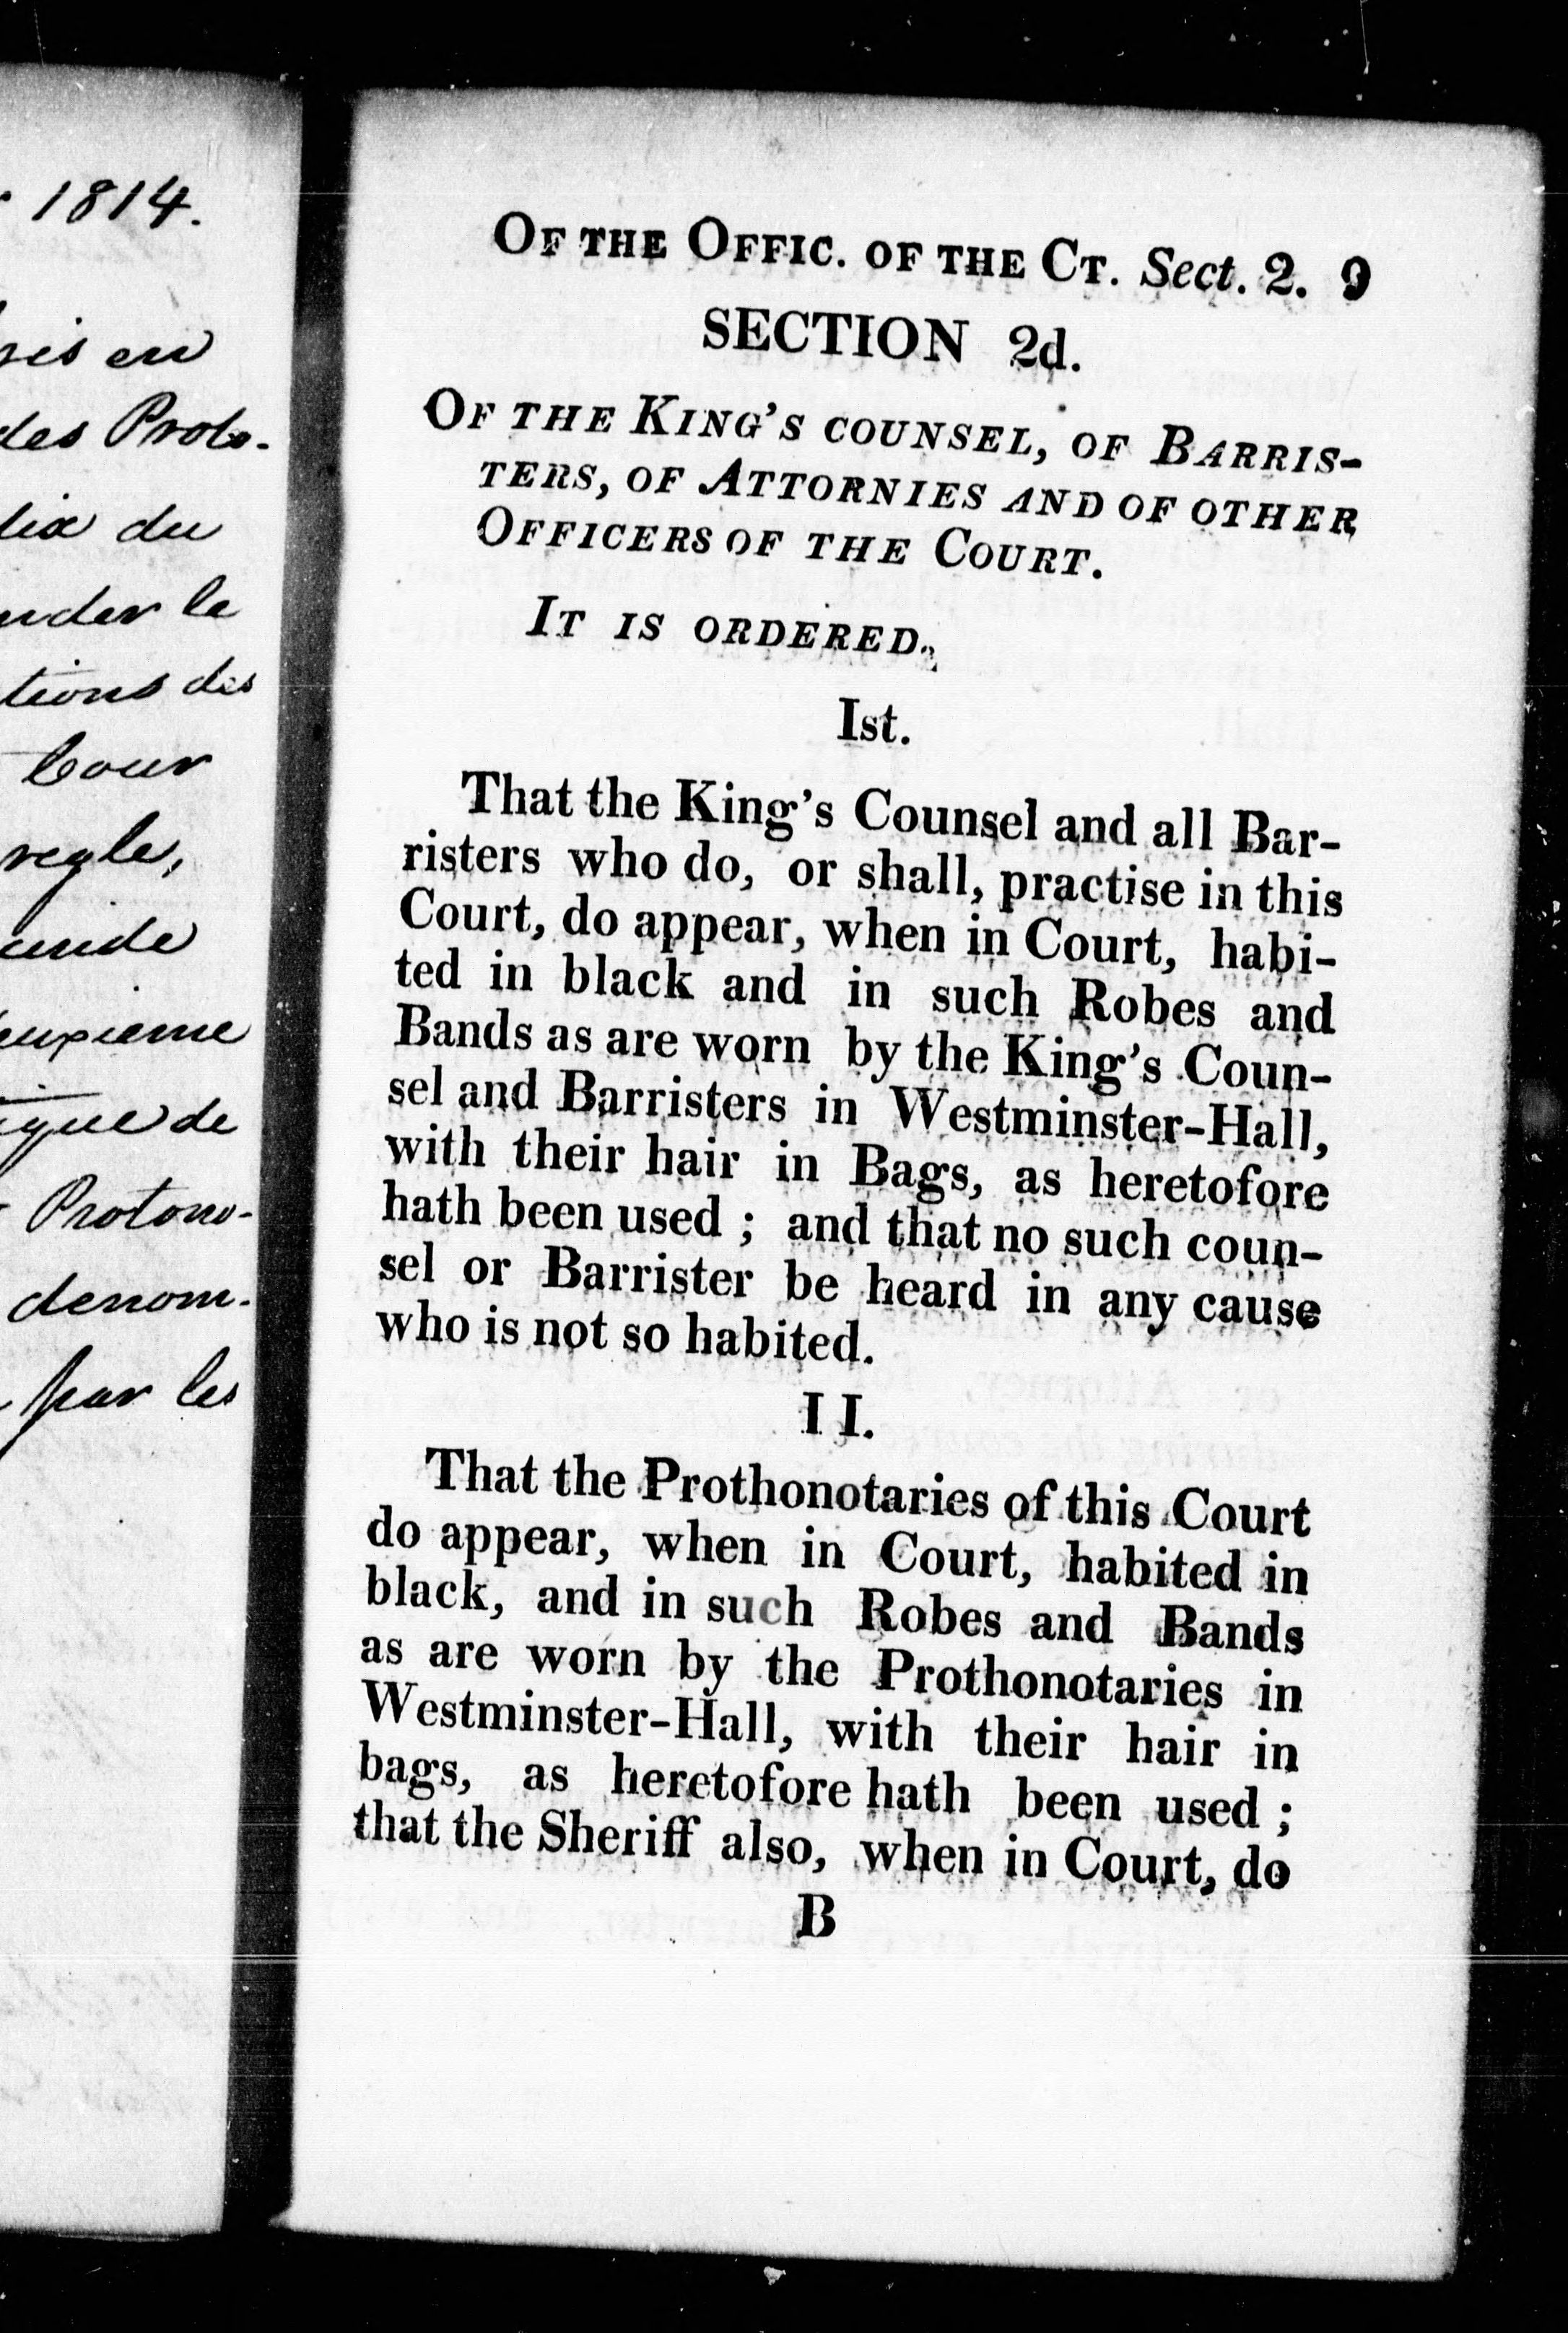 1814.
en
des Proto-
du
le
tions des
Cour
regle,
ique de
Protono-
denom-
par les
OF THE OFFIC. OF THE CT. Sect. 2. 9
SECTION 2d.
OF THE KING'S COUNSEL, OF BARRIS-
TERS, OF ATTORNIES AND OF OTHER
OFFICERS OF THE COURT.
IT IS ORDERED,
Ist.
That the King's Counsel and all Bar-
risters who do, or shall, practise in this
Court, do appear, when in Court, habi-
ted in black and in such Robes and
Bands as are worn by the King's Coun-
sel and Barristers in Westminster-Hall,
with their hair in Bags, as heretofore
hath been used ; and that no such coun-
sel or Barrister be heard in any cause
who is not so habited.
II.
That the Prothonotaries of this Court
do appear, when in Court, habited in
black, and in such Robes and Bands
as are worn by the Prothonotaries in
Westminster-Hall, with their hair in
bags, as heretofore hath been used ;
that the Sheriff also, when in Court, do
B